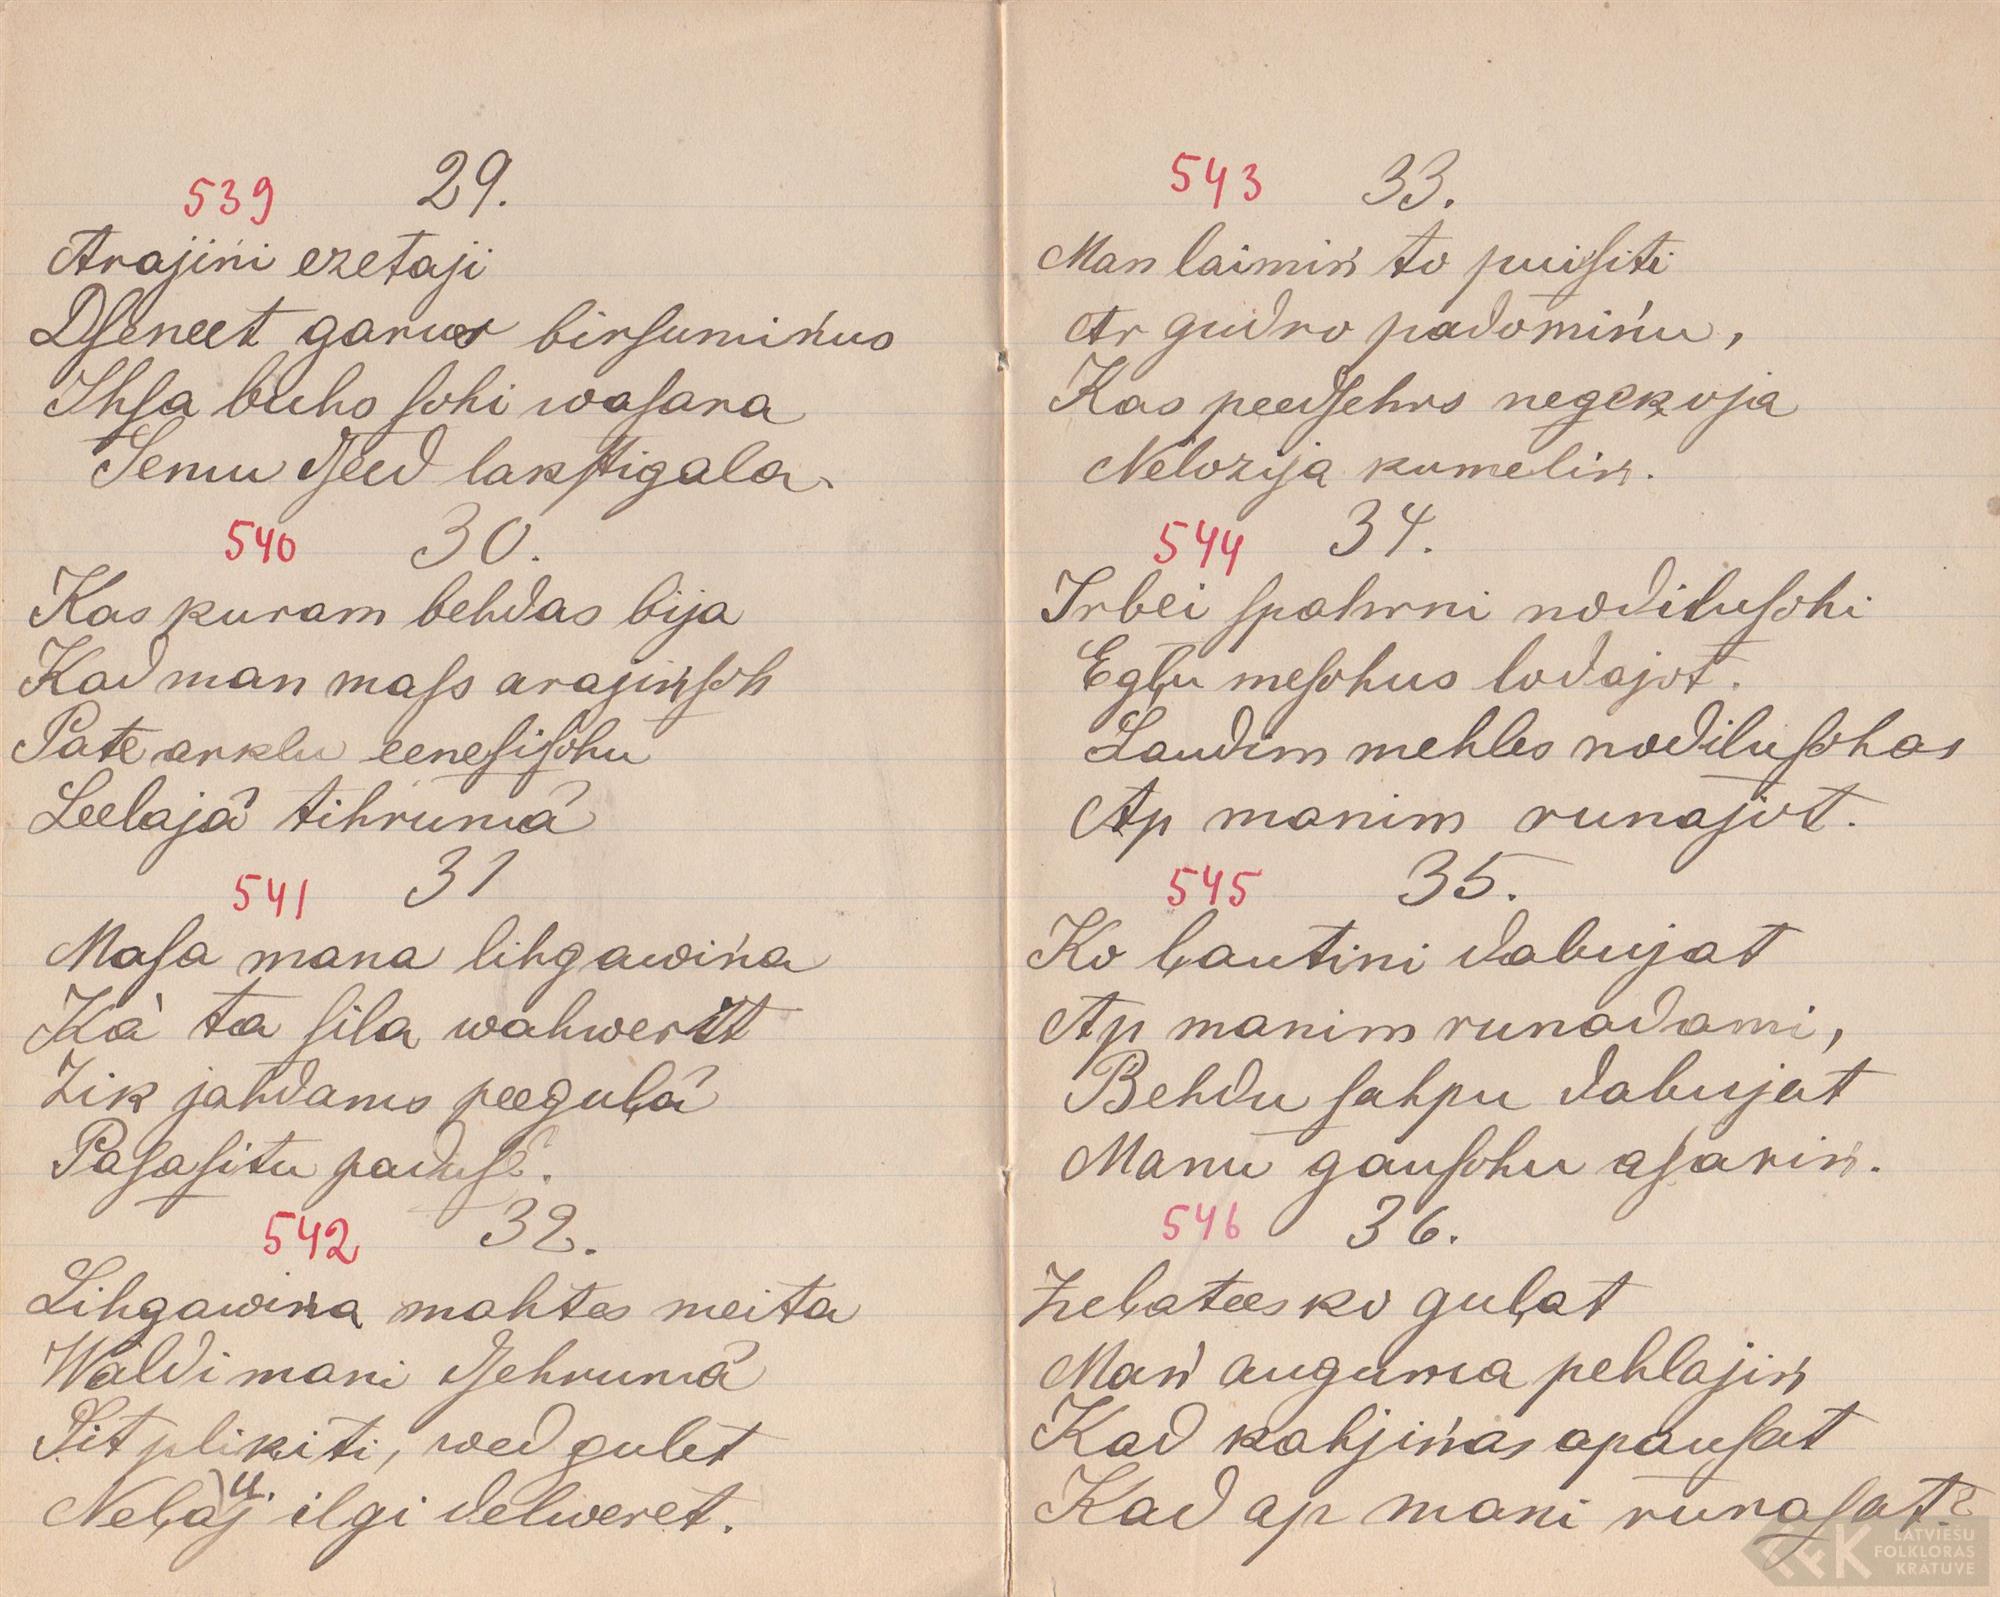 539 29.
Arajiņi ezetaji
Dſeneet garus birſumiņus
Ihſa buhs ſchi waſara
Semu dſeed lakſtigala.
540 30.
Kas kuram behdas bija
Kad man maſs arajinſch
Pate arklu eeneſiſchu
Leelajâ tihrumâ
541 31
Maſa mana lihgawiņa
Kà ta ſila wahwerit
Zik jahdams peeguļâ
Paſaſitu paduſê.
542 32.
Lihgawiņa mahtes meita
Waldi mani dſehrumâ
Sit plikiti, wed gulet
Neļauj ilgi delweret.
543 33.
Man laimiņ to puiſiti
Ar gudro padomiņu,
Kas peedſehrs negekoja
Nelozija kumeliņ.
544 34.
Irbei ſpahrni nodiluſchi
Egļu meſchus lodajot.
Laudim mehles nodiluſchas
Ap manim runajot.
545 35.
Ko ļautiņi dabujat
Ap manim runadami,
Behdu ſahpu dabujat
Manu gauſchu aſariņ.
546 36.
Zeļatees ko guļat
Man auguma pehlajiņ
Kad kahjiņas apauſat
Kad ap mani runaſat?
LATVIEŠU
FOLKLORAS
KRĀTUVE